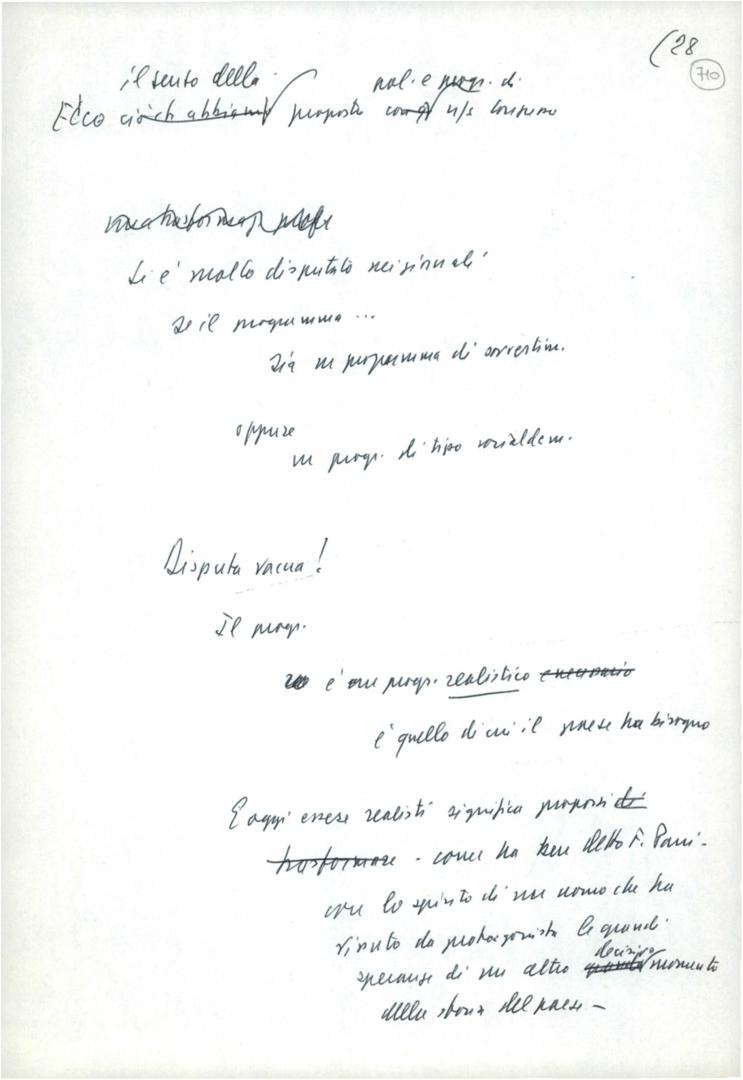 (28
710
il senso della pol. e progr. di
Ecco ciò ch abbiamo proposto con n/s
Si è molto disputato nei giornali
se il programma ...
sia un programma di sovvertim.
oppure
un progr. di tipo socialdem.
Disputa vacua!
Il progr.
è un progr. realistico
è quello di cui il paese ha bisogno
E oggi essere realisti significa proporsi di
trasformare - come ha ben detto F. Parri -
con lo spirito di un uomo che ha
vissuto da protagonista le grandi
decisivo
speranze di un altro momento
della storia del paese -